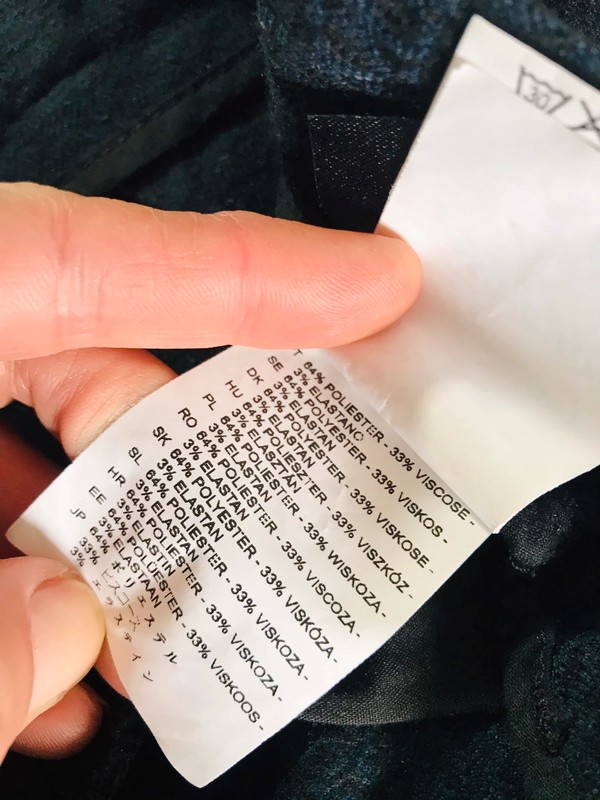 30
T 64% POLIESTER - 33% VISCOSE -
3% ELASTANO
SE 64% POLYESTER - 33% VISKOS -
3% ELASTAN
DK 64% POLYESTER - 33% VISKOSE -
3% ELASTAN
HU 64% POLIESZTER - 33% VISZKÓZ -
3% ELASZTÁN
PL 64% POLIESTER - 33% WISKOZA -
3% ELASTAN
RO 64% POLIESTER - 33% VISCOZA -
3% ELASTAN
SK 64% POLYESTER - 33% VISKÓZA -
3% ELASTAN
SL 64% POLIESTER - 33% VISKOZA -
3% ELASTAN
HR 64% POLIESTER - 33% VISKOZA -
3% ELASTIN
EE 64% POLÜESTER - 33% VISKOOS -
3% ELASTAAN
JP 64% ポリエステル
33% ビスコース
3% エラスティン